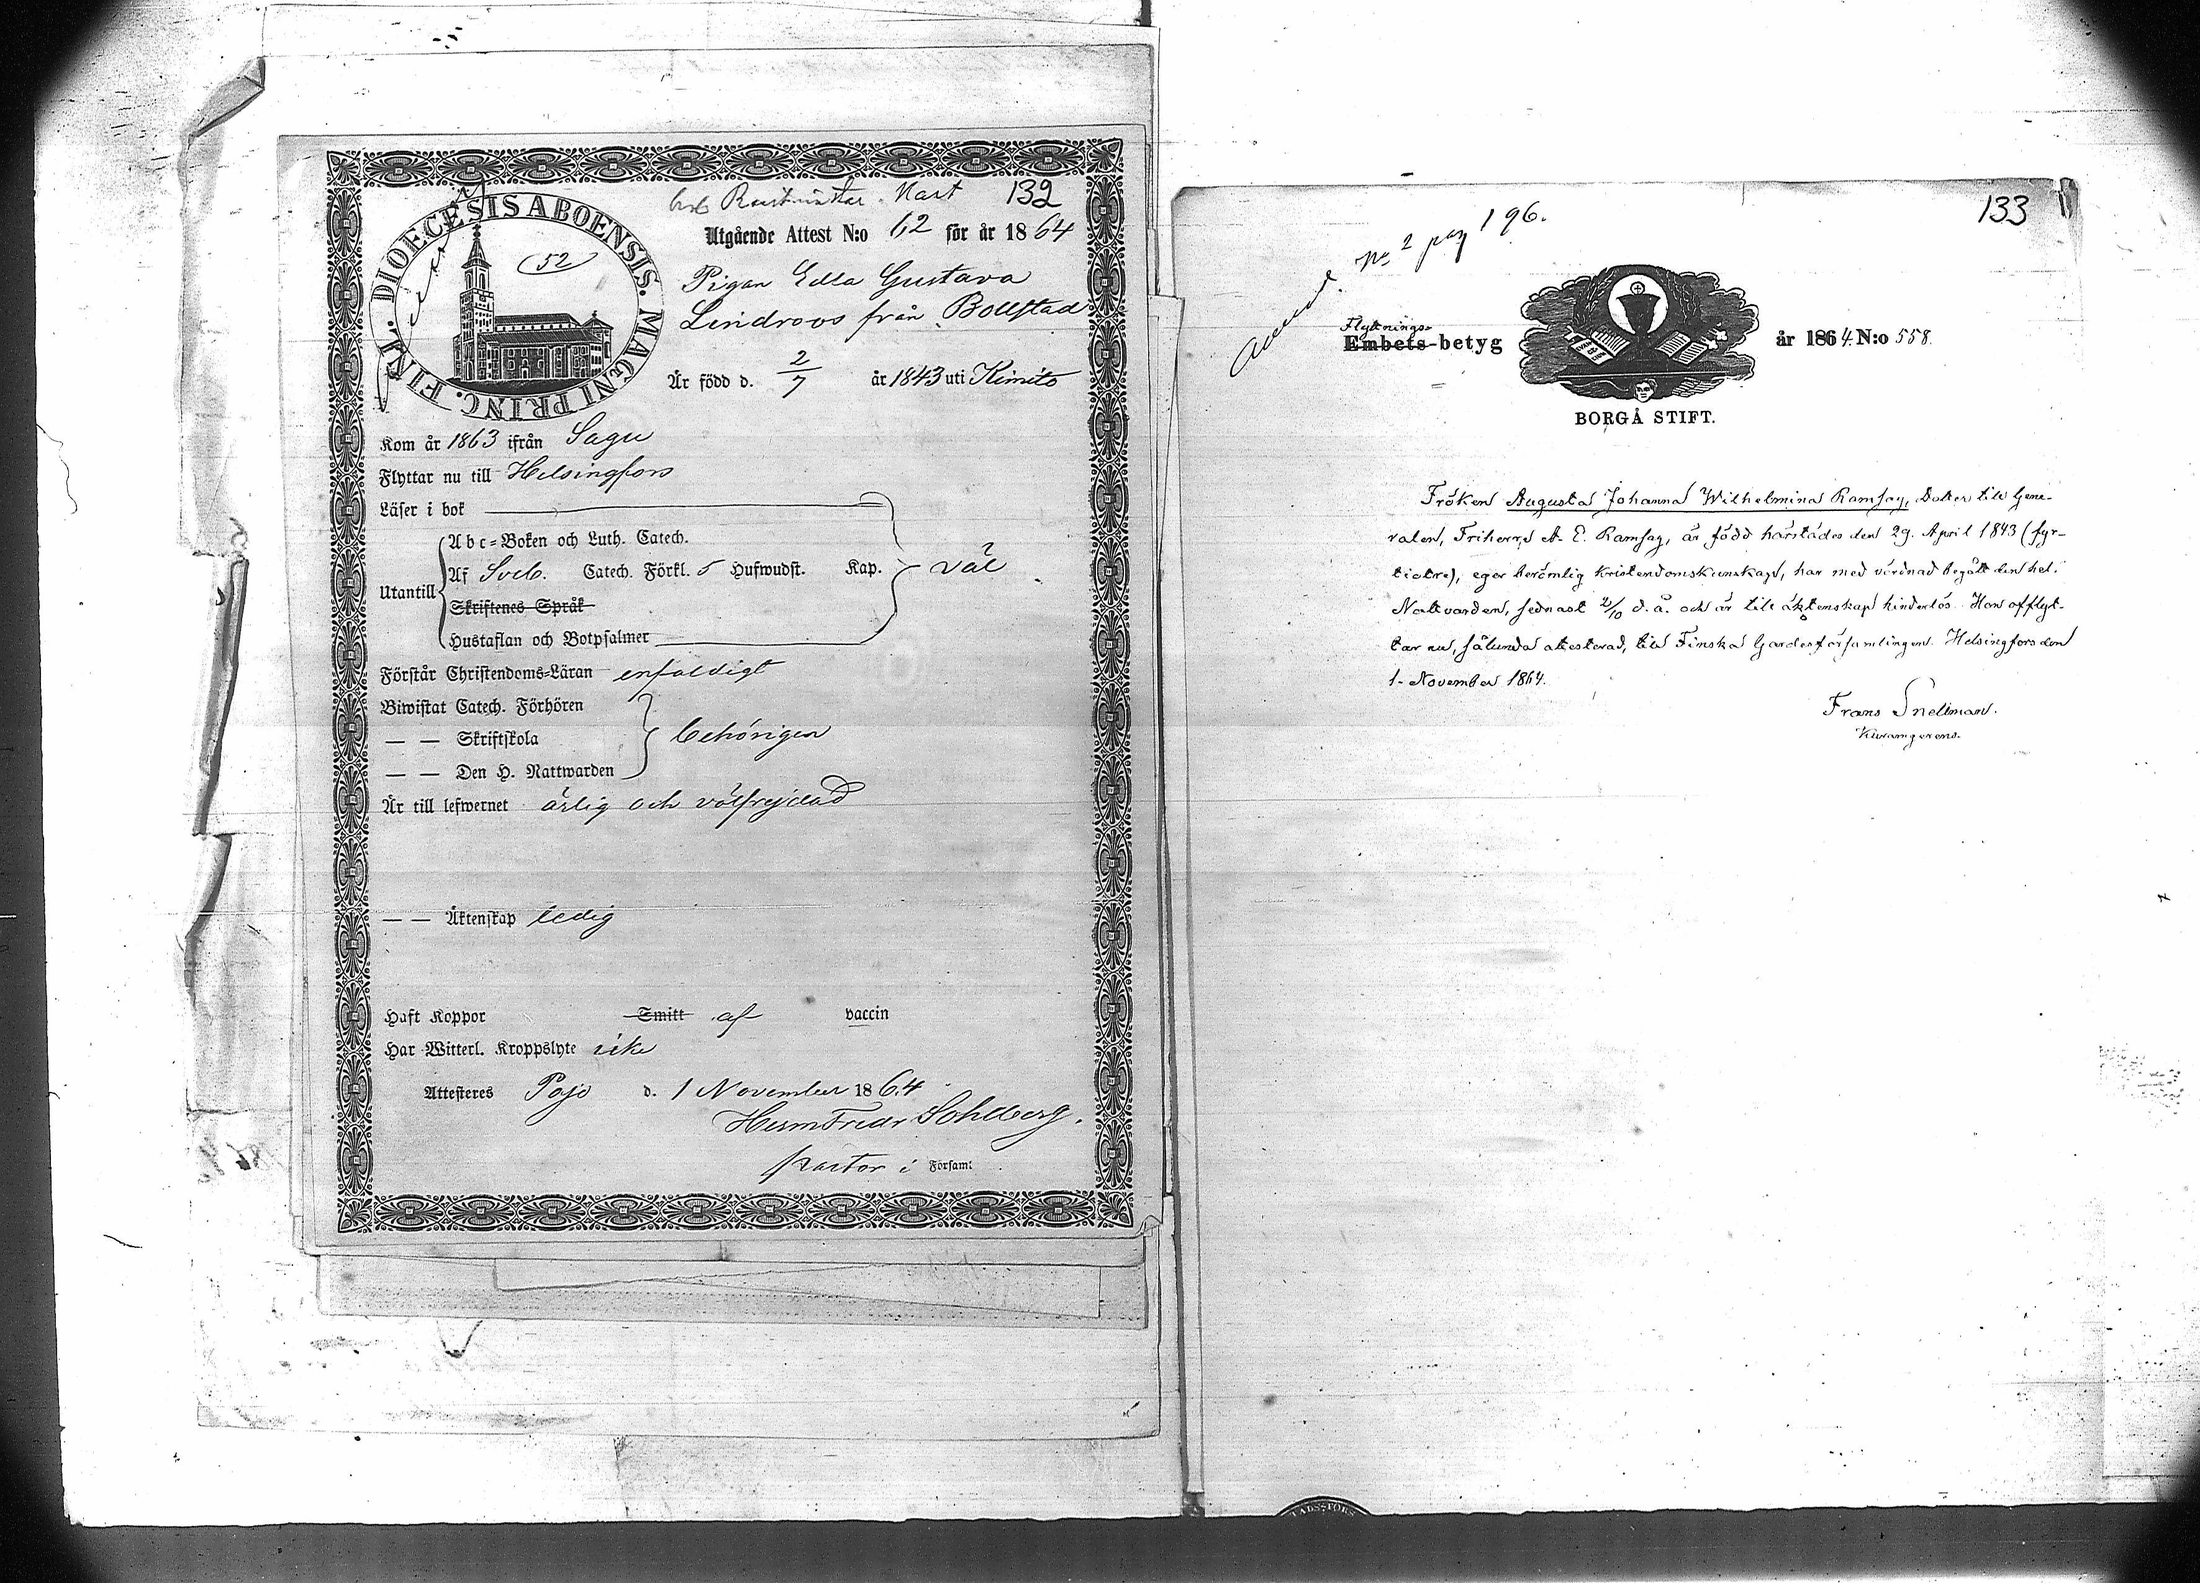 132
DIOECESIS ABOENSIS. MAGNI PRINC. FINL.
52
Utgående Attest N:o 62 för år 1864
Pigan Edla Gustava
Lindroos från Bollstad
Är född d. 2/7 år 1843 uti Kimito
Kom år 1863 ifrån Sagu
Flyttar nu till Helsingfors
Läser i bok
Abc-Boken och Luth. Catech.
Utantill Af Sveb. Catech. Förkl. 5 Hufwudst. Kap. väl
Skriftenes Språk
Hustaflan och Botpsalmer
Förstår Christendoms-Läran enfaldigt
Biwistat Catech. Förhören
— — Skriftskola behörigen
— — Den H. Nattwarden
Är till lefwernet ärlig och välfrejdad
— — Äktenskap ledig
Haft Koppor Smitt af vaccin
Har Witterl. Kroppslyte icke
Attesteres Pojo d. 1 November 1864
Herm Fredr Sohlberg.
pastor i Församl
133
No 2 pag 196.
Flyttnings-
Embets-betyg år 1864. N:o 558.
BORGÅ STIFT.
Fröken Augusta Johanna Wilhelmina Ramsay, Dotter till Gene-
ralen, Friherre A. E. Ramsay, är född härstädes den 29. April 1843 (fyr-
tiotre), eger berömlig kristendomskunskap, har med vördnad begått den hel.
Nattvarden, sednast 2/10 d. å. och är till äktenskap hinderlös. Hon afflyt-
tar nu, sålunda attesterad, till Finska Gardesförsamlingen. Helsingfors den
1. November 1864.
Frans Snellman.